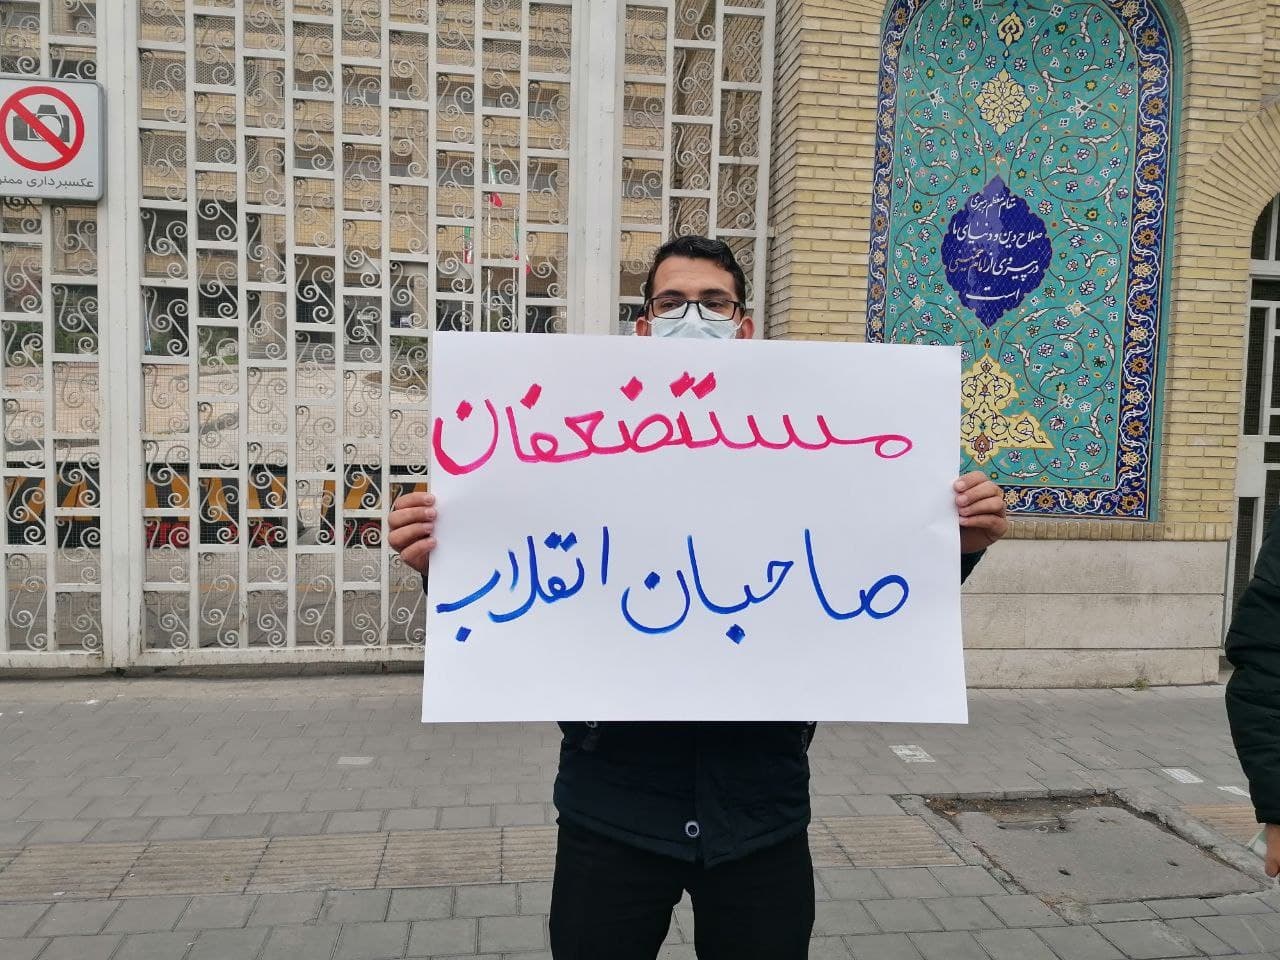 عکسبرداری ممنو
مقام معظم رهبری
صلاح دین و دنیای ما
در پیروی از امام خمینی
است
مستضعفان
صاحبان انقلاب